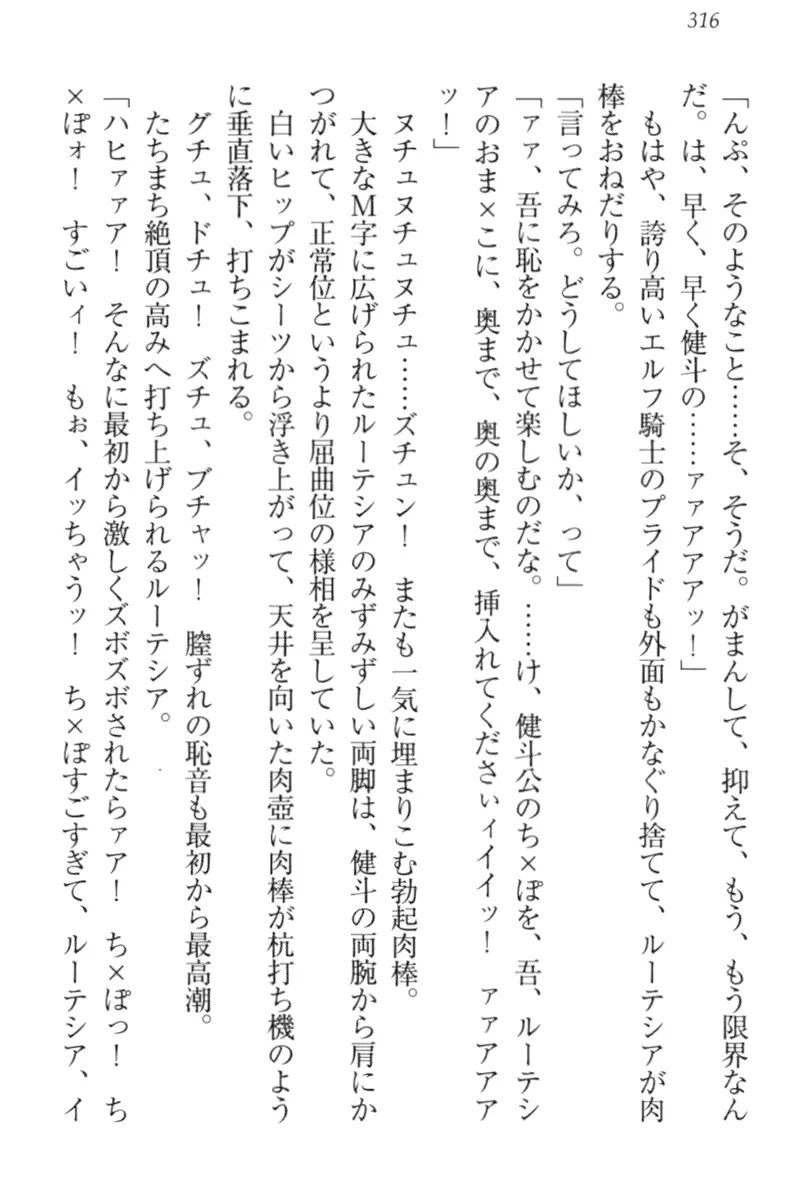 316
「んぷ、そのようなこと……そ、そうだ。がまんして、抑えて、もう、もう限界なん
だ。は、早く、早く健斗の……ァァアアアッ！」
もはや、誇り高いエルフ騎士のプライドも外面もかなぐり捨てて、ルーテシアが肉
棒をおねだりする。
「言ってみろ。どうしてほしいか、って」
「ァァ、吾に恥をかかせて楽しむのだな。……け、健斗公のち×ぽを、吾、ルーテシ
アのおま×こに、奥まで、奥の奥まで、挿入れてくださぃィイイッ！　ァァアアア
ッ！」
ヌチュヌチュヌチュ……ズチュン！　またも一気に埋まりこむ勃起肉棒。
大きなＭ字に広げられたルーテシアのみずみずしい両脚は、健斗の両腕から肩にか
つがれて、正常位というより屈曲位の様相を呈していた。
白いヒップがシーツから浮き上がって、天井を向いた肉壺に肉棒が杭打ち機のよう
に垂直落下、打ちこまれる。
グチュ、ドチュ！　ズチュ、ブチャッ！　膣ずれの恥音も最初から最高潮。
たちまち絶頂の高みへ打ち上げられるルーテシア。
「ハヒァァア！　そんなに最初から激しくズボズボされたらァア！　ち×ぽっ！　ち
×ぽォ！　すごいィ！　もぉ、イッちゃうッ！　ち×ぽすごすぎて、ルーテシア、イ